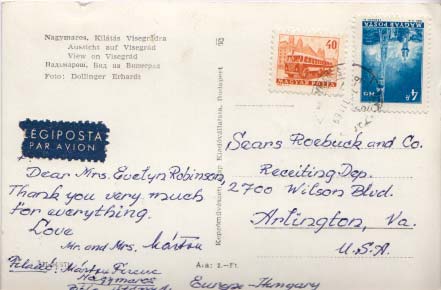 Nagymaros, Kilátás Visegrádra
Aussicht auf Visegrád
View on Visegrád
Надьмарош, Вид на Вишеград
Foto: Dollinger Erhardt
40
MAGYAR POSTA
MAGYAR POSTA
4 Ft
LÉGIPOSTA
PAR AVION
Dear Mrs. Evelyn Robinson,
Thank you very much
for everything.
Love
Mr. and Mrs. Márton
Feladó: Márton Ferenc
Nagymaros
Europe-Hungary
Képzőművészeti Alap Kiadóvállalata, Budapest
Ára: 2.-Ft
Sears Roebuck and Co.
Receiting Dep.
2700 Wilson Blvd.
Arlington, Va.
U.S.A